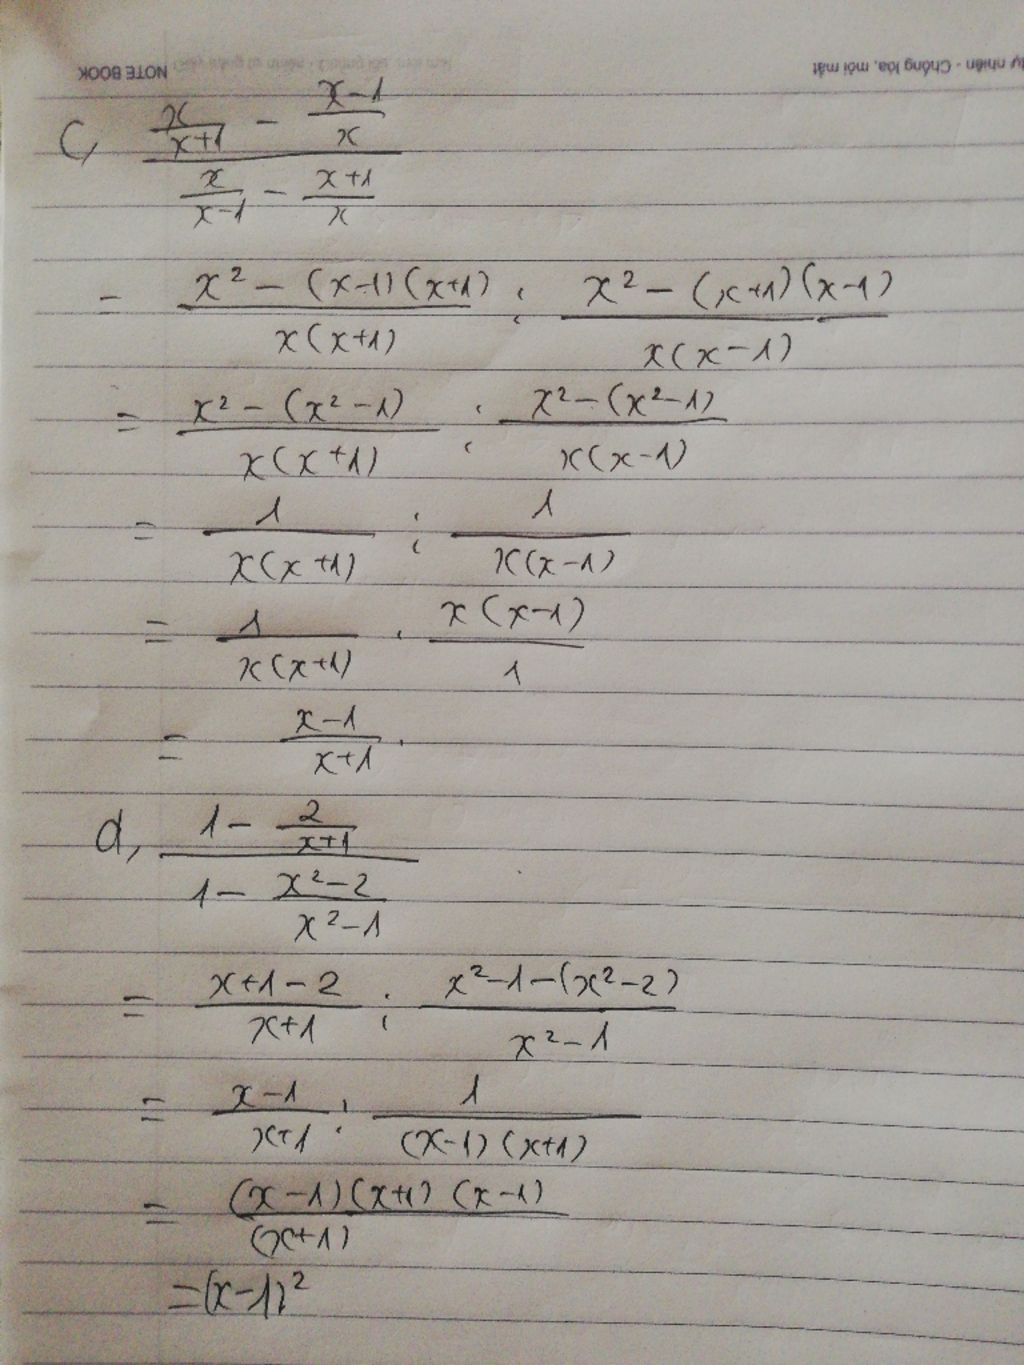 NOTE BOOK
tự nhiên - Chống lóa, mỏi mắt
c, (x/(x+1) - (x-1)/x) / (x/(x-1) - (x+1)/x)
= (x² - (x-1)(x+1))/(x(x+1)) : (x² - (x+1)(x-1))/(x(x-1))
= (x² - (x² - 1))/(x(x+1)) : (x² - (x² - 1))/(x(x-1))
= 1/(x(x+1)) : 1/(x(x-1))
= 1/(x(x+1)) . (x(x-1))/1
= (x-1)/(x+1) .
d, (1 - 2/(x+1)) / (1 - (x²-2)/(x²-1))
= (x+1-2)/(x+1) : (x²-1-(x²-2))/(x²-1)
= (x-1)/(x+1) : 1/((x-1)(x+1))
= ((x-1)(x+1)(x-1))/((x+1))
= (x-1)²